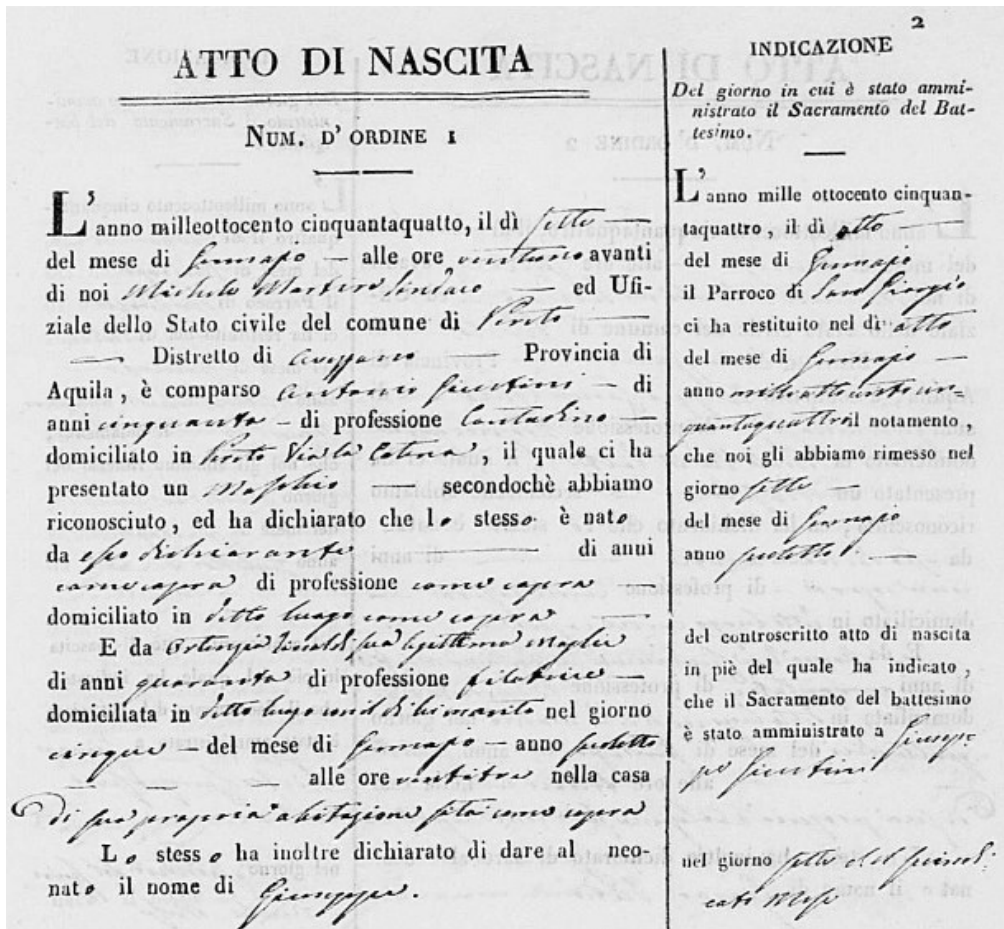 2
ATTO DI NASCITA
NUM. D' ORDINE 1
L' anno milleottocento cinquantaquatto, il dì sette
del mese di Gennajo — alle ore ventuno avanti
di noi Michele Sindaco — ed Ufi-
ziale dello Stato civile del comune di
— Distretto di Avezzano Provincia di
Aquila, è comparso Antonio Giustini — di
anni cinquanta — di professione Contadino —
domiciliato in Via la , il quale ci ha
presentato un Maschio — secondochè abbiamo
riconosciuto, ed ha dichiarato che lo stesso è nato
da esso Dichiarante — di anni
come sopra di professione come sopra —
domiciliato in detto luogo come sopra —
E da Ortenzia sua legittima moglie
di anni quaranta di professione filatrice —
domiciliata in detto luogo col di lui marito nel giorno
cinque — del mese di Gennajo — anno sudetto
— alle ore ventitre nella casa
di sua propria abitazione sita come sopra
Lo stesso ha inoltre dichiarato di dare al neo-
nato il nome di Giuseppe.
INDICAZIONE
Del giorno in cui è stato ammi-
nistrato il Sacramento del Bat-
tesimo.
L' anno mille ottocento cinquan-
taquattro, il dì otto —
del mese di Gennajo
il Parroco di San Giorgio
ci ha restituito nel dì otto
del mese di Gennajo —
anno milleottocento cin-
quantaquattro il notamento,
che noi gli abbiamo rimesso nel
giorno sette —
del mese di Gennajo
anno sudetto —
del controscritto atto di nascita
in piè del quale ha indicato,
che il Sacramento del battesimo
è stato amministrato a Giusep
pe Giustini
nel giorno sette
mese